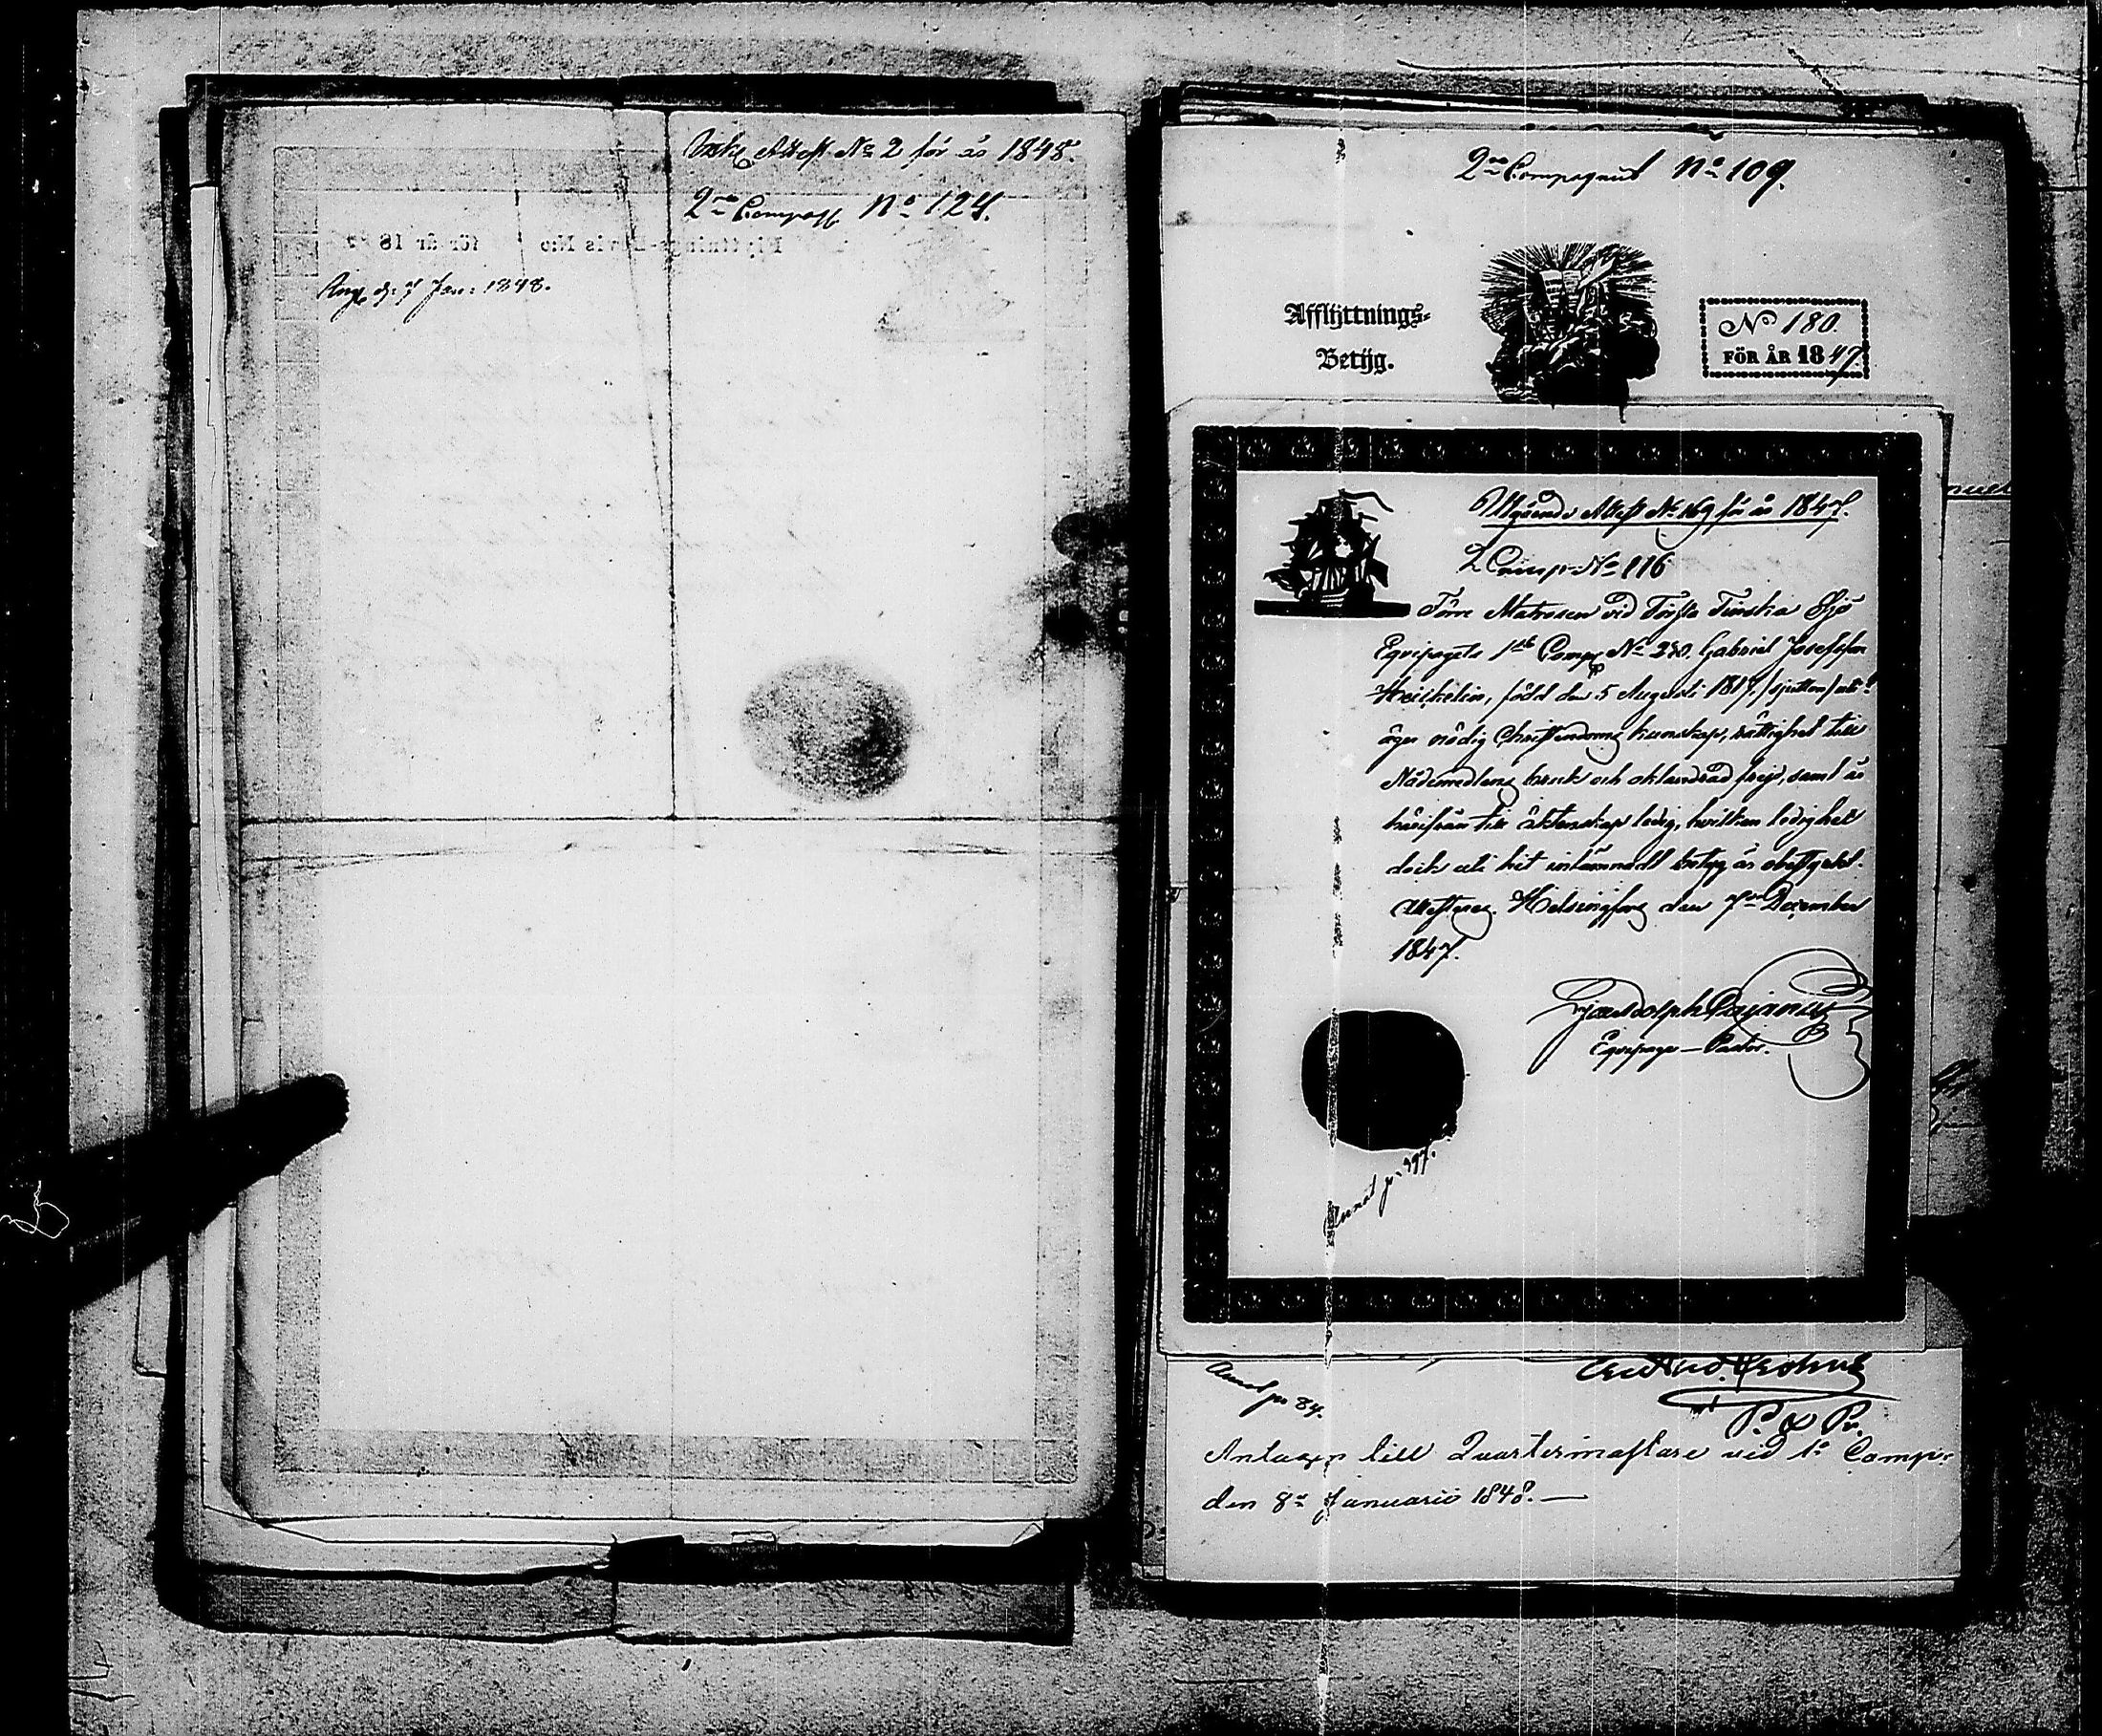 Attest No 2 för år 1848.
2ra Comp No 124.
Flyttnings-Bevis No för år 18
d. 7 Jan: 1848.
2ra Compagniet No 109.
Afflyttnings-
Betyg.
No 180.
FÖR ÅR 1847.
Utgående Attest No 169 för år 1847.
2 Comp. No 116
Förre Matrosen vid Första Finska Sjö
Equipagets 1sta Comp No 280. Gabriel Josefsson
född den 5 Augusti 1817, /sjutton/
äger nödig Christendoms kunskap, rättighet till
Nådemedlens bruk och oklandrad frejd, samt är
härifrån till äktenskap ledig, hvilken ledighet
dock uti hit inlämnadt betyg är obestyrkt.
Attesteras. Helsingfors den 7de December
1847.
Equipage-Pastor.
Annot p. 397.
Annot p. 84.
P. & Pr.
Antagen till Quartermästare vid 1a Comp:
den 8de Januarii 1848.—